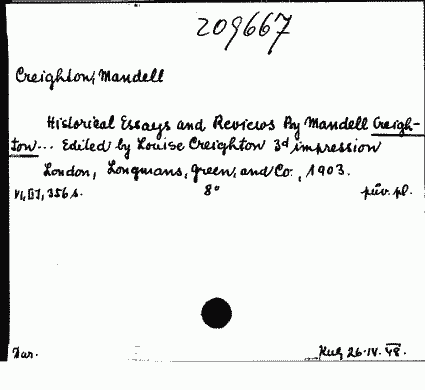 209667
Creighton, Mandell
Historical Essays and Reviews By Mandell Creigh-
ton... Edited by Louise Creighton 3d impression
London, Longmans, Green, and Co., 1903.
8°
356 s.
Dar.
26.IV.48.